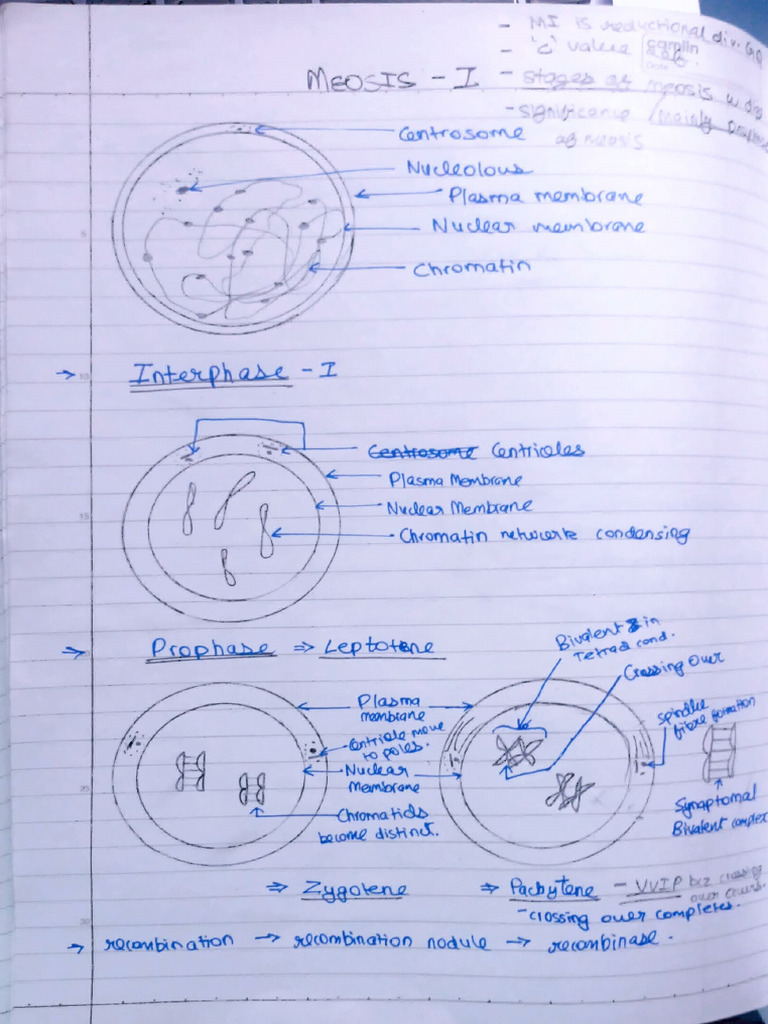 - MI is reductional div.
- 'c' value
camlin
MEOSIS - I
- stages of meosis w
- significance / mainly
of meosis
Centrosome
Nucleolous
Plasma membrane
Nuclear membrane
Chromatin
→ Interphase - I
Centrosome Centrioles
Plasma Membrane
Nuclear Membrane
Chromatin network condensing
⇒ Prophase ⇒ Leptotene
Bivalent in
Tetrad cond.
Crossing Over
Plasma
membrane
Centriole move
to poles.
Nuclear
Membrane
Chromatids
become distinct.
spindle
fibre formation
Synaptomal
Bivalent complex
⇒ Zygotene ⇒ Pachytene - VVIP bcz crossing
over occurs.
- crossing over completes.
→ recombination → recombination nodule → recombinase.